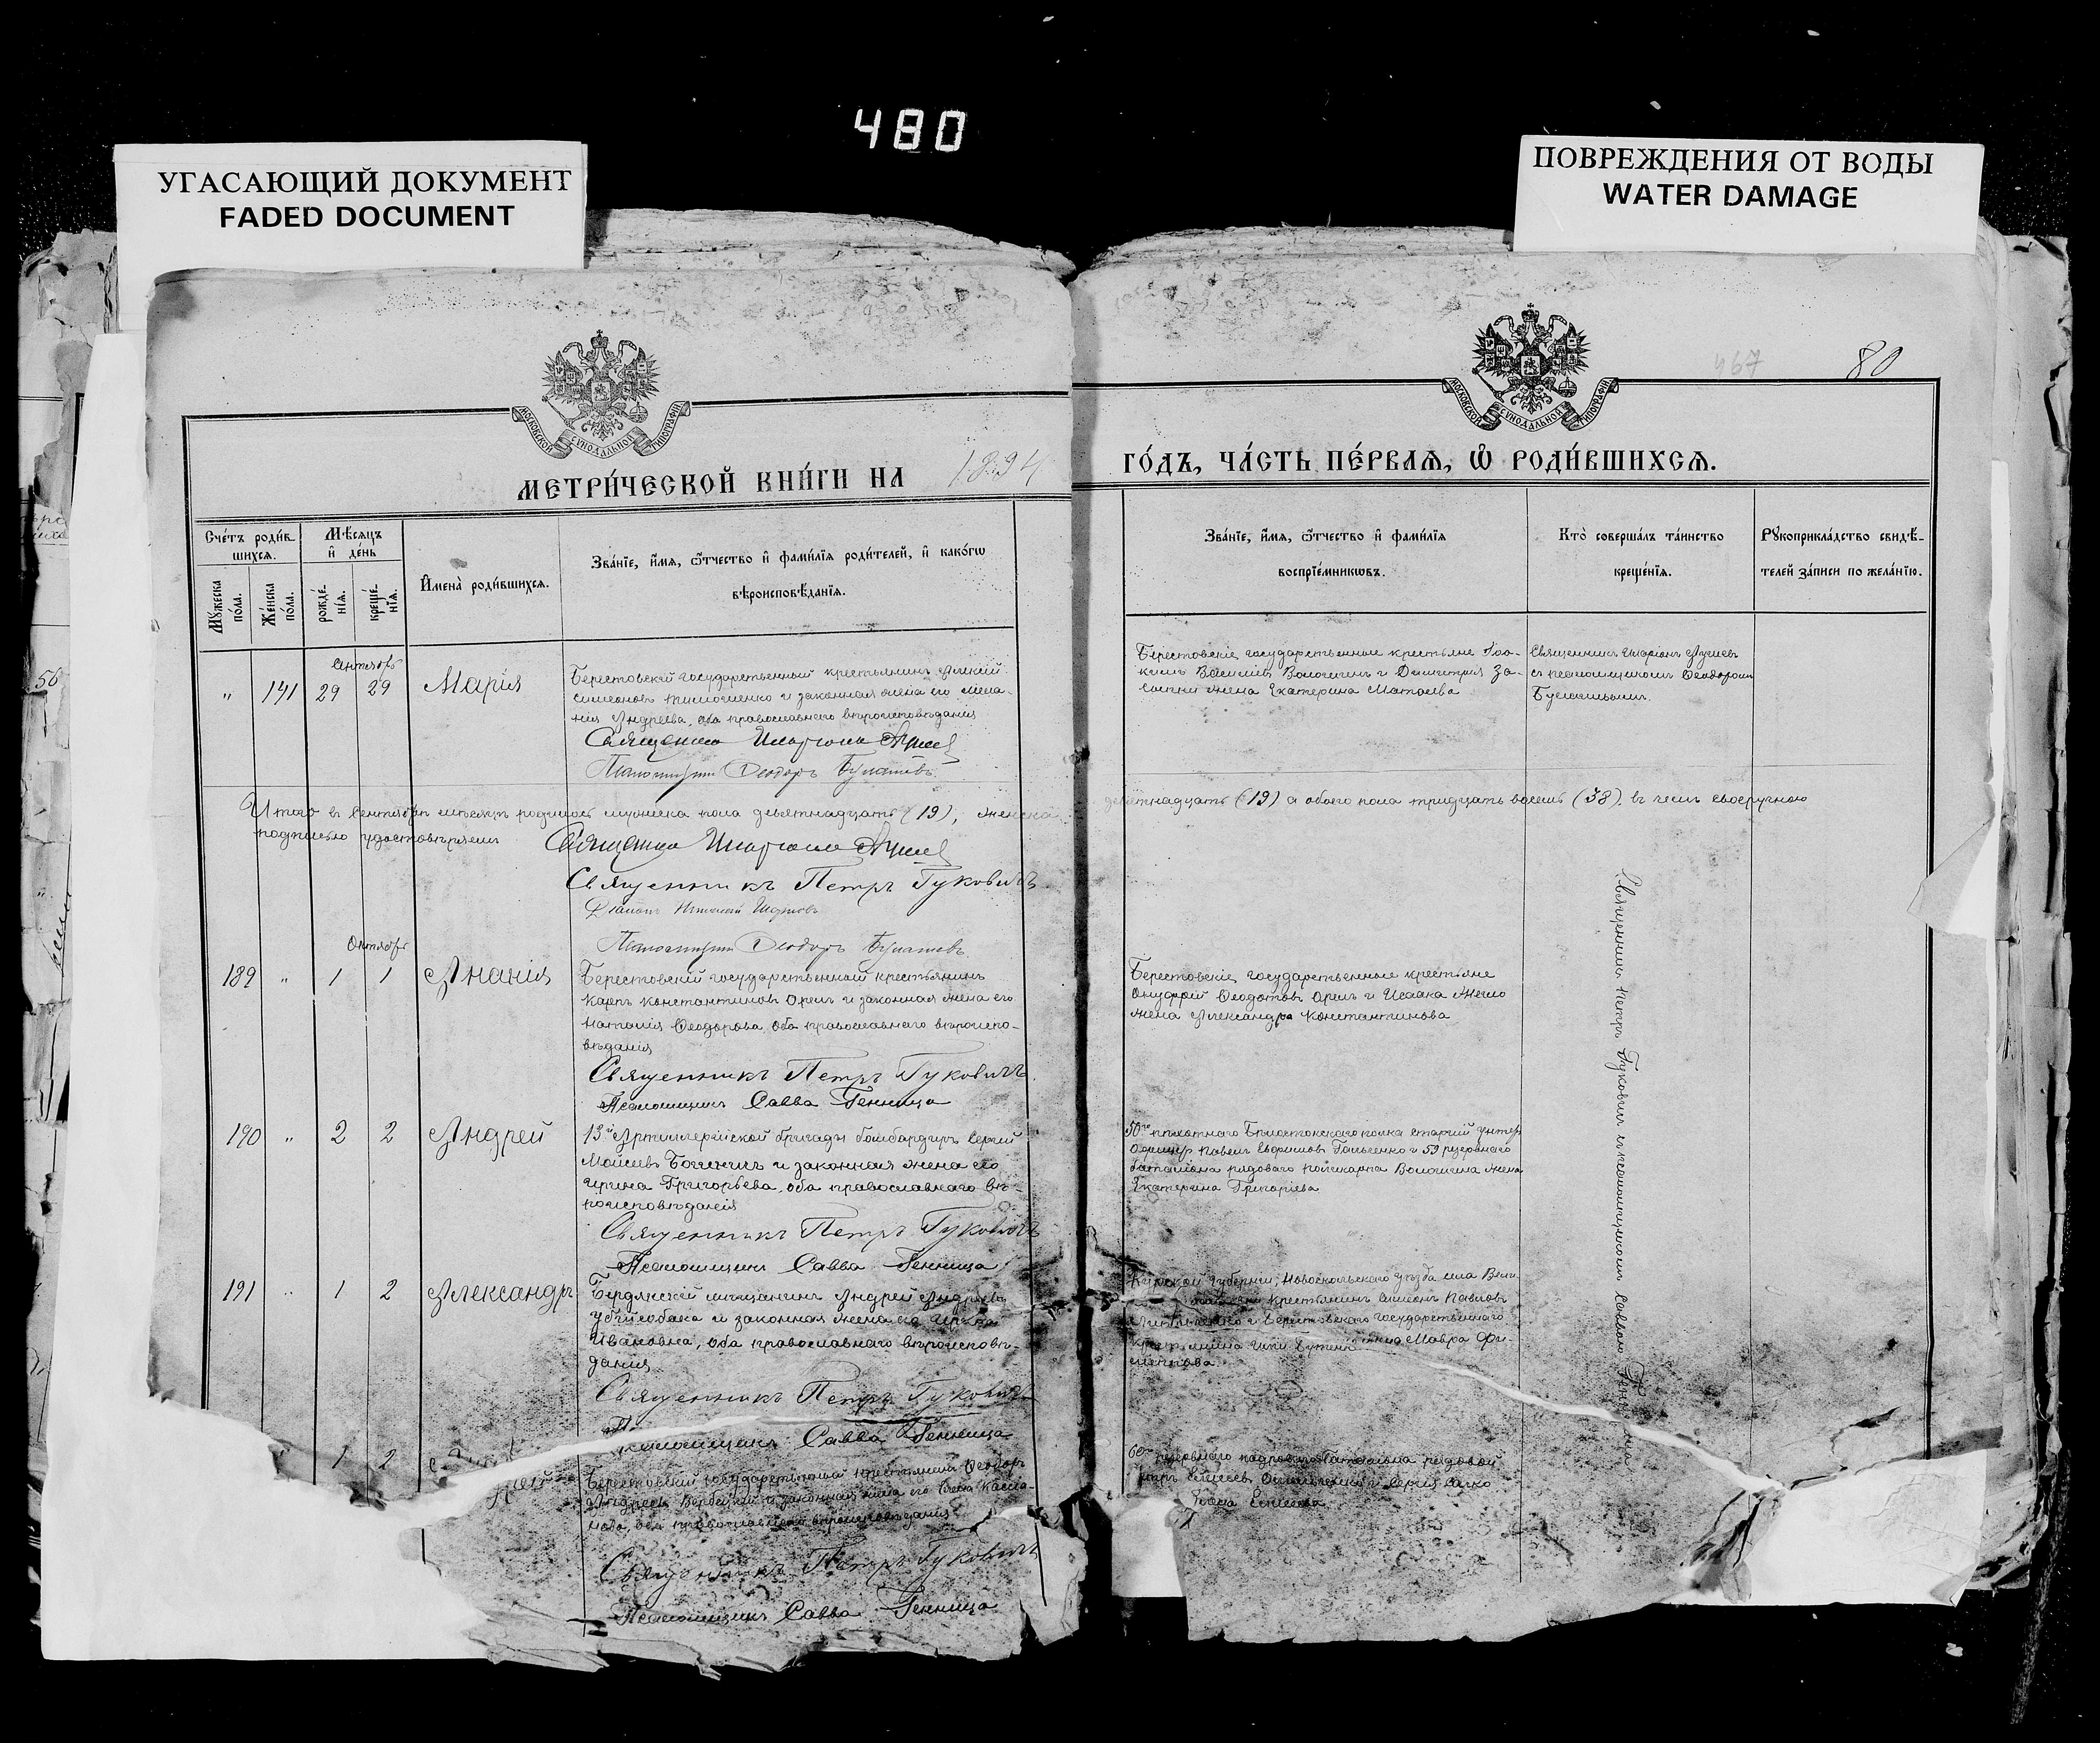 480
УГАСАЮЩИЙ ДОКУМЕНТ
FADED DOCUMENT
ПОВРЕЖДЕНИЯ ОТ ВОДЫ
WATER DAMAGE
467
80
МОСКОВСКОЙ СѴНОДАЛЬНОЙ ТИПОГРАФІИ
МОСКОВСКОЙ СѴНОДАЛЬНОЙ ТИПОГРАФІИ
МЕТРИ́ЧЕСКОЙ КНИ́ГИ НА 1894
ГО́ДЪ, ЧА́СТЬ ПЕ́РВАѦ, Ѡ҆ РОДИ́ВШИХСѦ.
Сче́тъ роди́в-
шихсѧ.
Мѣ́сѧцъ
и҆ де́нь
Мꙋ́жеска
по́ла.
Же́нска
по́ла.
рожде́-
нїѧ.
креще́-
нїѧ.
И҆мена̀ роди́вшихсѧ.
Зва́нїе, и҆́мѧ, ѻ҆́тчество и҆ фамилїѧ роди́телей, и҆ како́гѡ
вѣроисповѣ́данїѧ.
Зва́нїе, и҆́мѧ, ѻ҆́тчество и҆ фами́лїѧ
воспрїе́мникѡвъ.
Кто̀ соверша́лъ та́инство
креще́нїѧ.
Рꙋкоприкла́дство свидѣ́-
телей за́писи по жела́нїю.
Сентябрь
" 141 29 29 Марія
Берестовскій государственный крестьянинъ Алексій
Симеоновъ Тимошенко и законная жена его Мела-
нія Андреева, оба православнаго вѣроисповѣданія
Священник Иларион
Псаломщикъ Ѳеодоръ Булашевъ
Берестовскіе государственные крестьяне Іоа-
кимъ Волошинъ и Димитрія За-
жена Екатерина Матѳеева
Священникъ Иларіонъ
съ псаломщикомъ Ѳеодоромъ
Булашевымъ
Итого въ Сентябрѣ мѣсяцѣ родилось мужеска пола девятнадцать (19), женска
девятнадцать (19) а обоего пола тридцать восемь (38), въ чемъ своеручною
подписью удостовѣряемъ Священник Иларион
Священникъ Петръ Гуковичъ
Діаконъ
Псаломщикъ Ѳеодоръ Булашевъ
Октябрь
189 " 1 1 Ананія
Берестовскій государственный крестьянинъ
Карпъ Константиновъ Орелъ и законная жена его
Наталія Ѳеодорова, оба православнаго вѣроиспо-
вѣданія
Священникъ Петръ Гуковичъ
Псаломщикъ Савва Генница
Берестовскіе государственные крестьяне
Онуфрій Ѳеодотовъ Орелъ и Исаака
жена Александра Константинова
Священникъ Петръ Гуковичъ съ псаломщикомъ Саввою
190 " 2 2 Андрей
13й Артиллерійской бригады бомбардиръ Сергій
Моисеевъ и законная жена его
Ирина Григорьева, оба православнаго вѣ-
роисповѣданія
Священникъ Петръ Гуковичъ
Псаломщикъ Савва Генница
50го пѣхотнаго Бѣлостокскаго полка старшій унтеръ
Офицеръ Павелъ и 59 резервнаго
баталіона рядового Поликарпа Волошина жена
Екатерина Григоріева
191 " 1 2 Александръ
Бердянскій мѣщанинъ Андрей Андреевъ
Убейсобака и законная жена его
Ивановна, оба православнаго вѣроисповѣ-
данія
Священникъ Петръ Гуковичъ
Псаломщикъ Савва Генница
Курской губерніи, Новооскольскаго уѣзда села
крестьянинъ Симеонъ Павловъ
и Берестовскаго государственнаго
крестьянина жена Мавра Фи-
липпова
" 1 2
Берестовскій государственный крестьянинъ Ѳеодоръ
Андреевъ Вербецкій и законная жена его Елена
оба православнаго вѣроисповѣданія
Священникъ Петръ Гуковичъ
Псаломщикъ Савва Генница
60го резервнаго баталіона рядовой
и Сергія